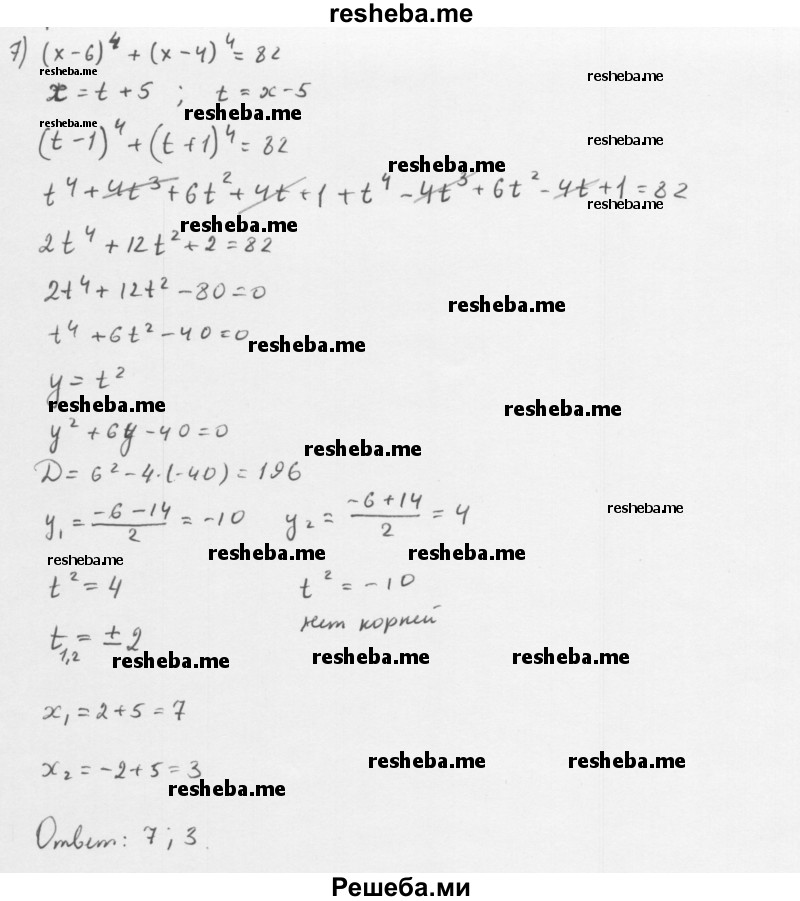 resheba.me
7) (x-6)⁴ + (x-4)⁴ = 82
resheba.me resheba.me
x = t + 5 ; t = x - 5
resheba.me
resheba.me resheba.me
(t-1)⁴ + (t+1)⁴ = 82
resheba.me
t⁴ + 4t³ + 6t² + 4t + 1 + t⁴ - 4t³ + 6t² - 4t + 1 = 82
resheba.me
resheba.me
2t⁴ + 12t² + 2 = 82
2t⁴ + 12t² - 80 = 0
resheba.me
t⁴ + 6t² - 40 = 0
resheba.me
y = t²
resheba.me resheba.me
y² + 6y - 40 = 0
resheba.me
D = 6² - 4·(-40) = 196
y₁ = (-6-14)/2 = -10 y₂ = (-6+14)/2 = 4
resheba.me
resheba.me resheba.me resheba.me
t² = 4 t² = -10
нет корней
t₁,₂ = ± 2
resheba.me resheba.me resheba.me
x₁ = 2 + 5 = 7
x₂ = -2 + 5 = 3
resheba.me resheba.me
resheba.me
Ответ: 7 ; 3.
Решеба.ми